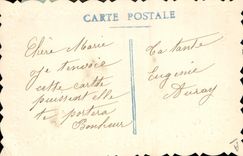 CARTE POSTALE
Chère Marie
Je t'envoie
cette carte
puissent elle
te portera
Bonheur
Ta tante
Eugenie
Auray